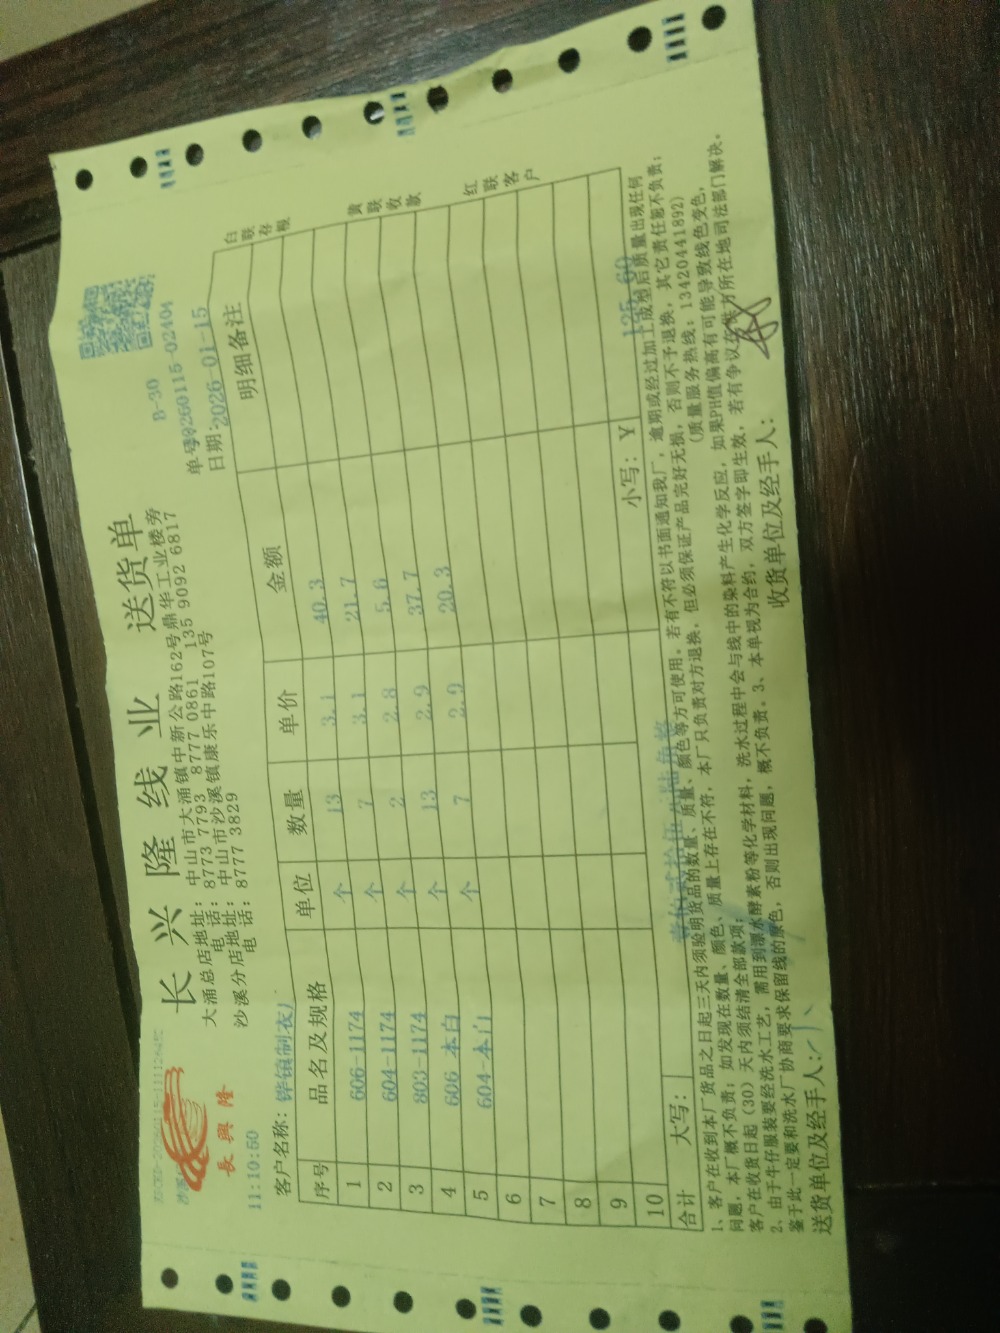 长兴隆线业 送货单
長興隆
大涌总店地址:中山市大涌镇中新公路162号鼎华工业楼旁
电 话:8773 7793 8777 0861 135 9092 6817
沙溪分店地址:中山市沙溪镇康乐中路107号
电 话:8777 3829
B-30
单号:
日期:2026-01-15
11:10:50
客户名称:
序号 品名及规格 单位 数量 单价 金额 明细备注
1 606-1174 个 13 3.1 40.3
2 604-1174 个 7 3.1 21.7
3 803-1174 个 2 2.8 5.6
4 606-本白 个 13 2.9 37.7
5 604-本白 个 7 2.9 20.3
6
7
8
9
10
合计 大写: 小写:¥ 125.60
白联存根
黄联收款
红联客户
1、客户在收到本厂货品之日起三天内须验明货品的数量、质量、颜色等方可使用。若有不符以书面通知我厂,逾期或经过加工成型后质量出现任何
问题,本厂概不负责;如发现在数量、颜色、质量上存在不符,本厂只负责对方退换,但必须保证产品完好无损,否则不予退换,其它责任恕不负责;
客户在收货日起(30)天内须结清全部款项; (质量服务热线:13420441892)
2、由于牛仔服装要经洗水工艺,需用到漂水酵素粉等化学材料,洗水过程中会与线中的染料产生化学反应,如果PH值偏高有可能导致线色变色,
鉴于此一定要和洗水厂协商要求保留线的原色,否则出现问题,概不负责。3、本单视为合约,双方签字即生效,若有争议在供方所在地司法部门解决。
送货单位及经手人: 收货单位及经手人: